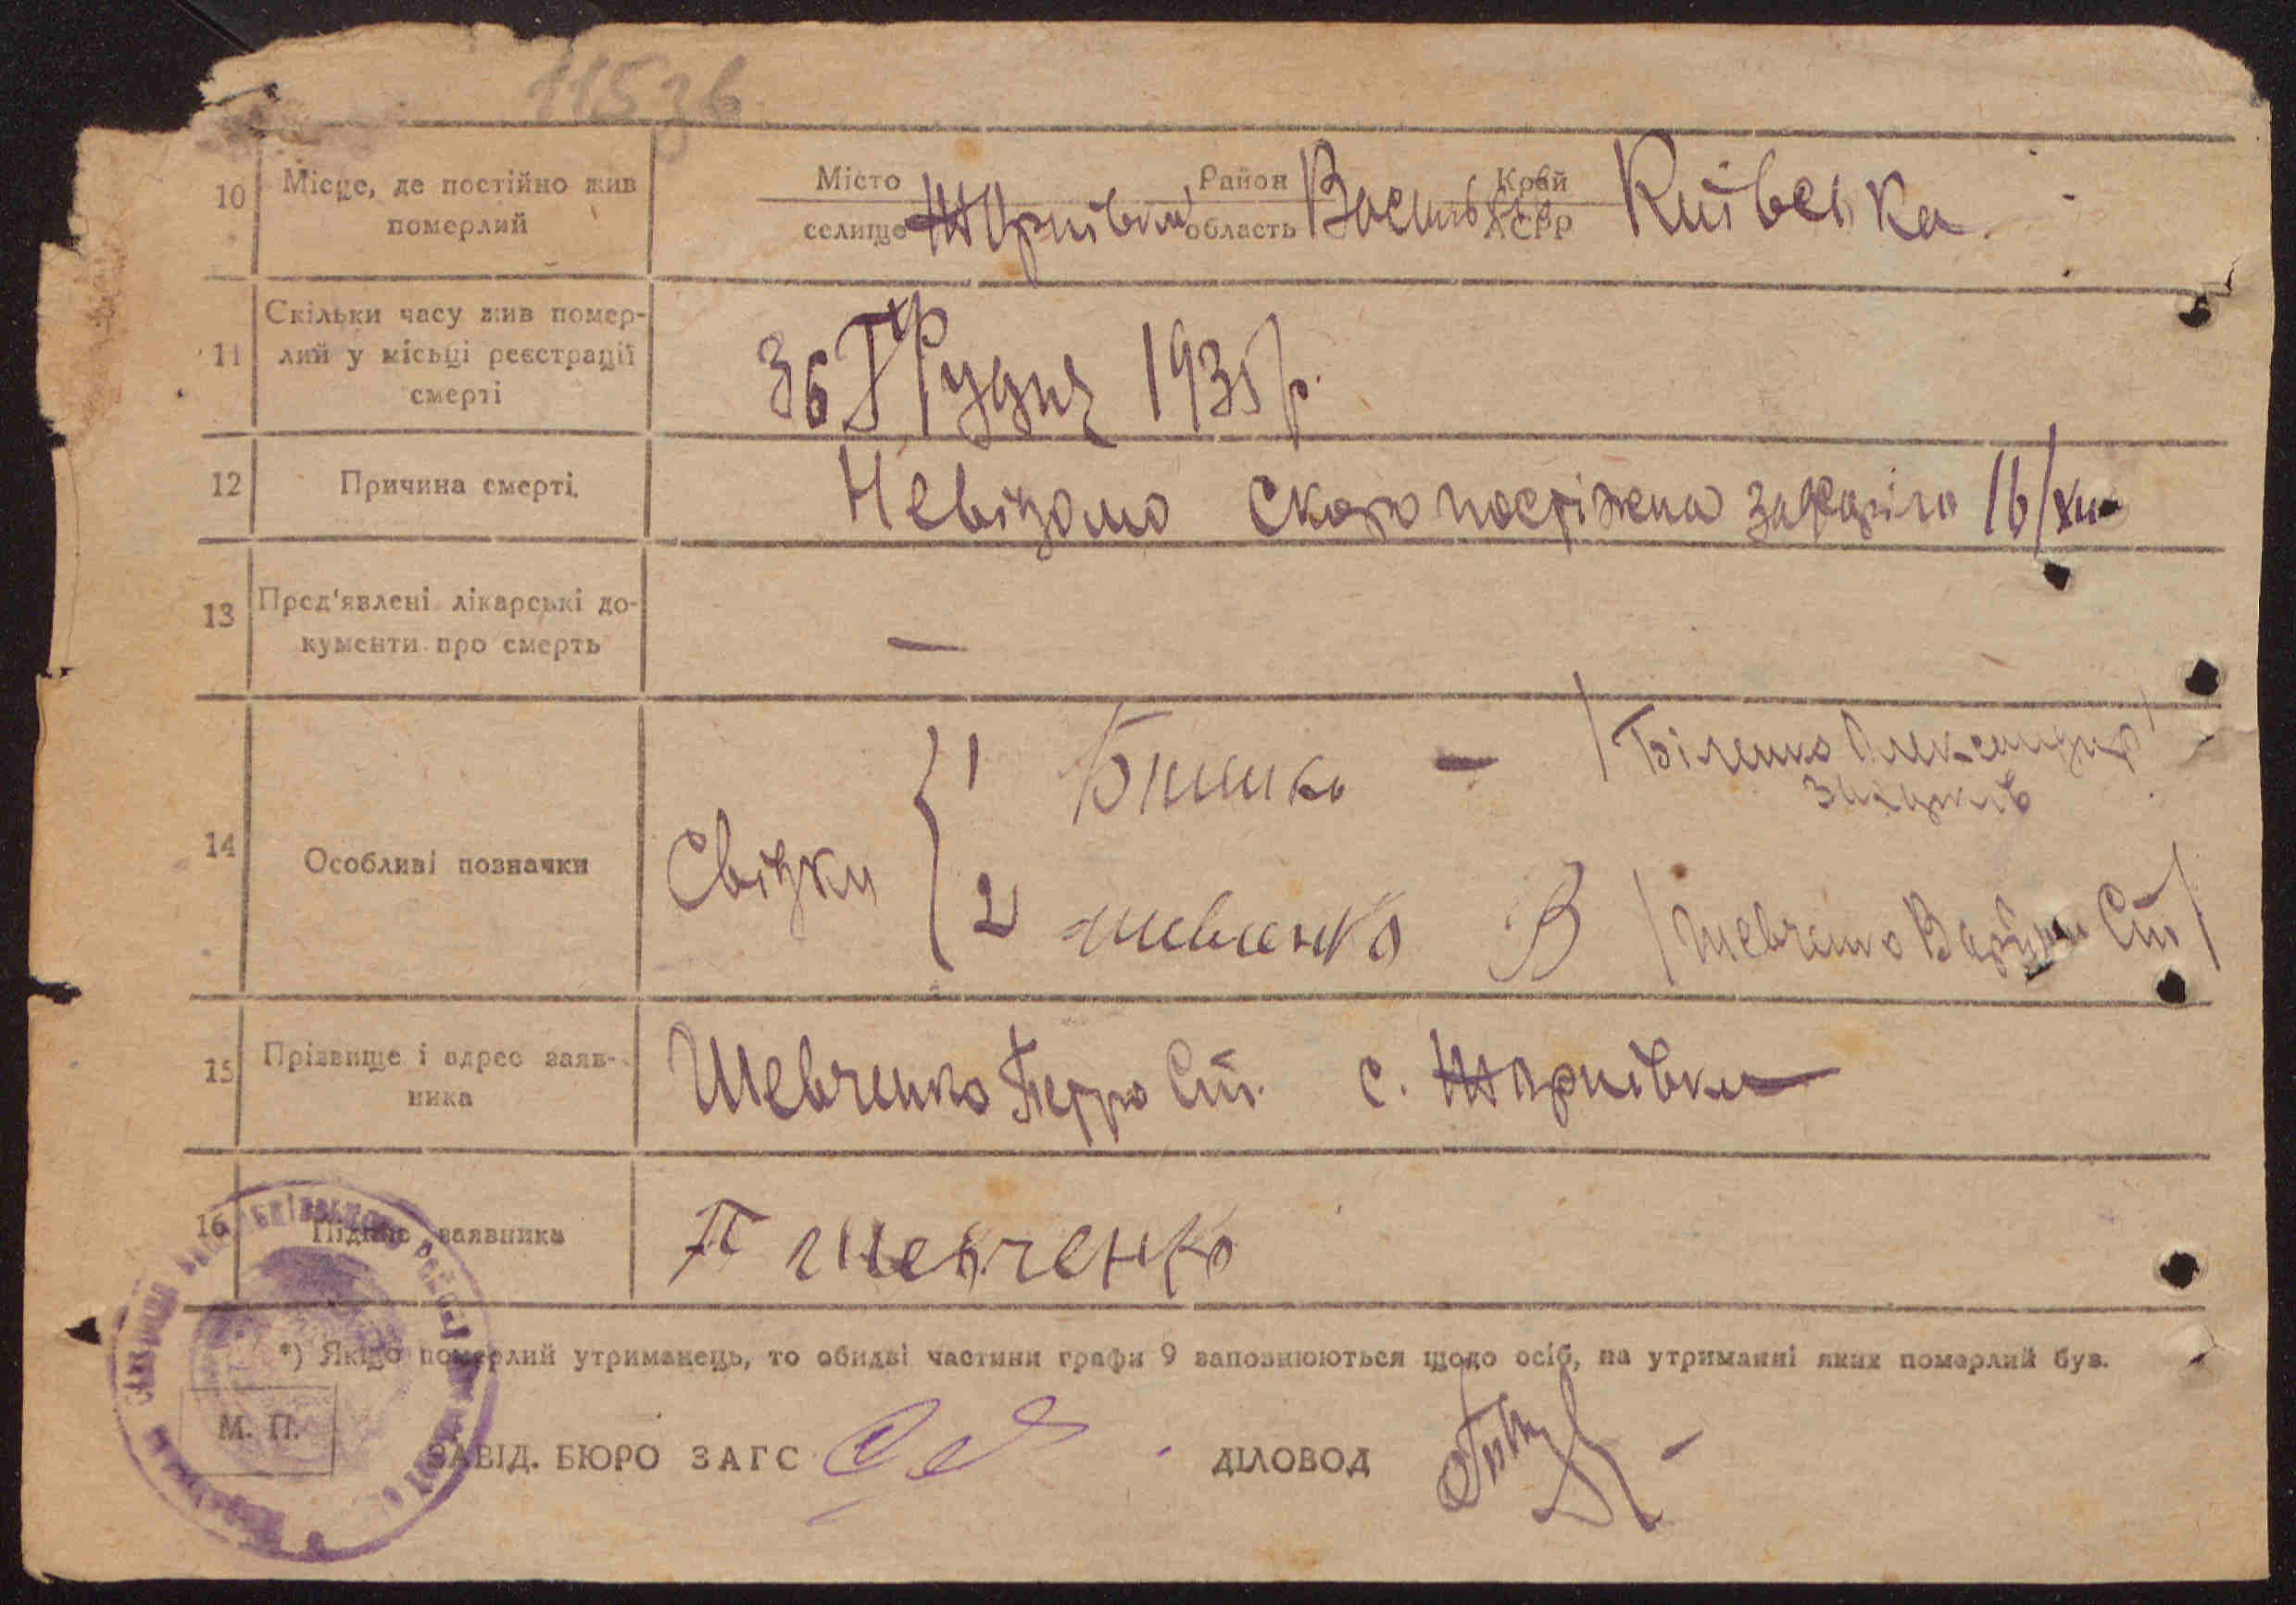 10 Місце, де постійно жив померлий
Місто селище Жорнівка Район область Васильк Край АСРР Київська
11 Скільки часу жив померлий у місьці реєстрації смерті
Грудня 1935 р.
12 Причина смерті.
Невідомо скоропостіжна 16/XII
13 Пред'явлені лікарські документи про смерть
—
14 Особливі позначки
Свідки
1 — /Біленко Олександра/
2 Шевченко В /Шевченко Ст/
15 Прізвище і адрес заявника
Шевченко Петро Ст. с. Жорнівка
16 Підпис заявника
П Шевченко
*) Якщо померлий утриманець, то обидві частини графи 9 заповнюються щодо осіб, на утриманні яких померлий був.
М. П.
ЗАВІД. БЮРО ЗАГС ДІЛОВОД